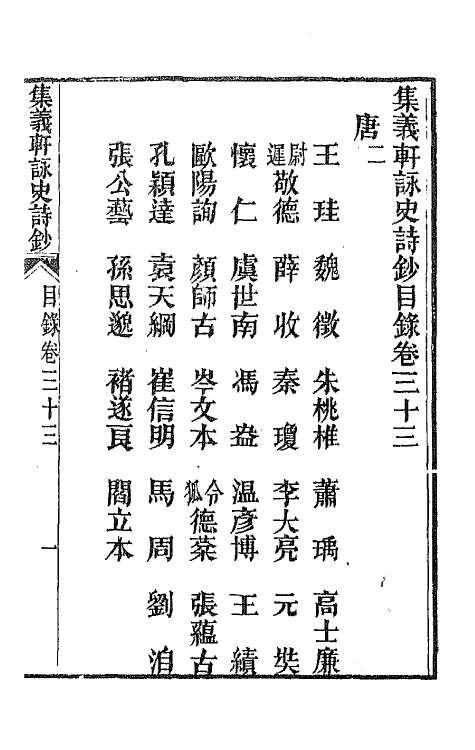 集義軒詠史詩鈔目錄卷三十三
唐二
王珪 魏徵 朱桃椎 蕭瑀 高士廉
尉遲敬德 薛收 秦瓊 李大亮 元奘
懷仁 虞世南 馮盎 温彥博 王績
歐陽詢 顏師古 岑文本 令狐德棻 張蘊古
孔穎達 袁天綱 崔信明 馬周 劉洎
張公藝 孫思邈 褚遂良 閻立本
集義軒詠史詩鈔 目錄卷三十三 一